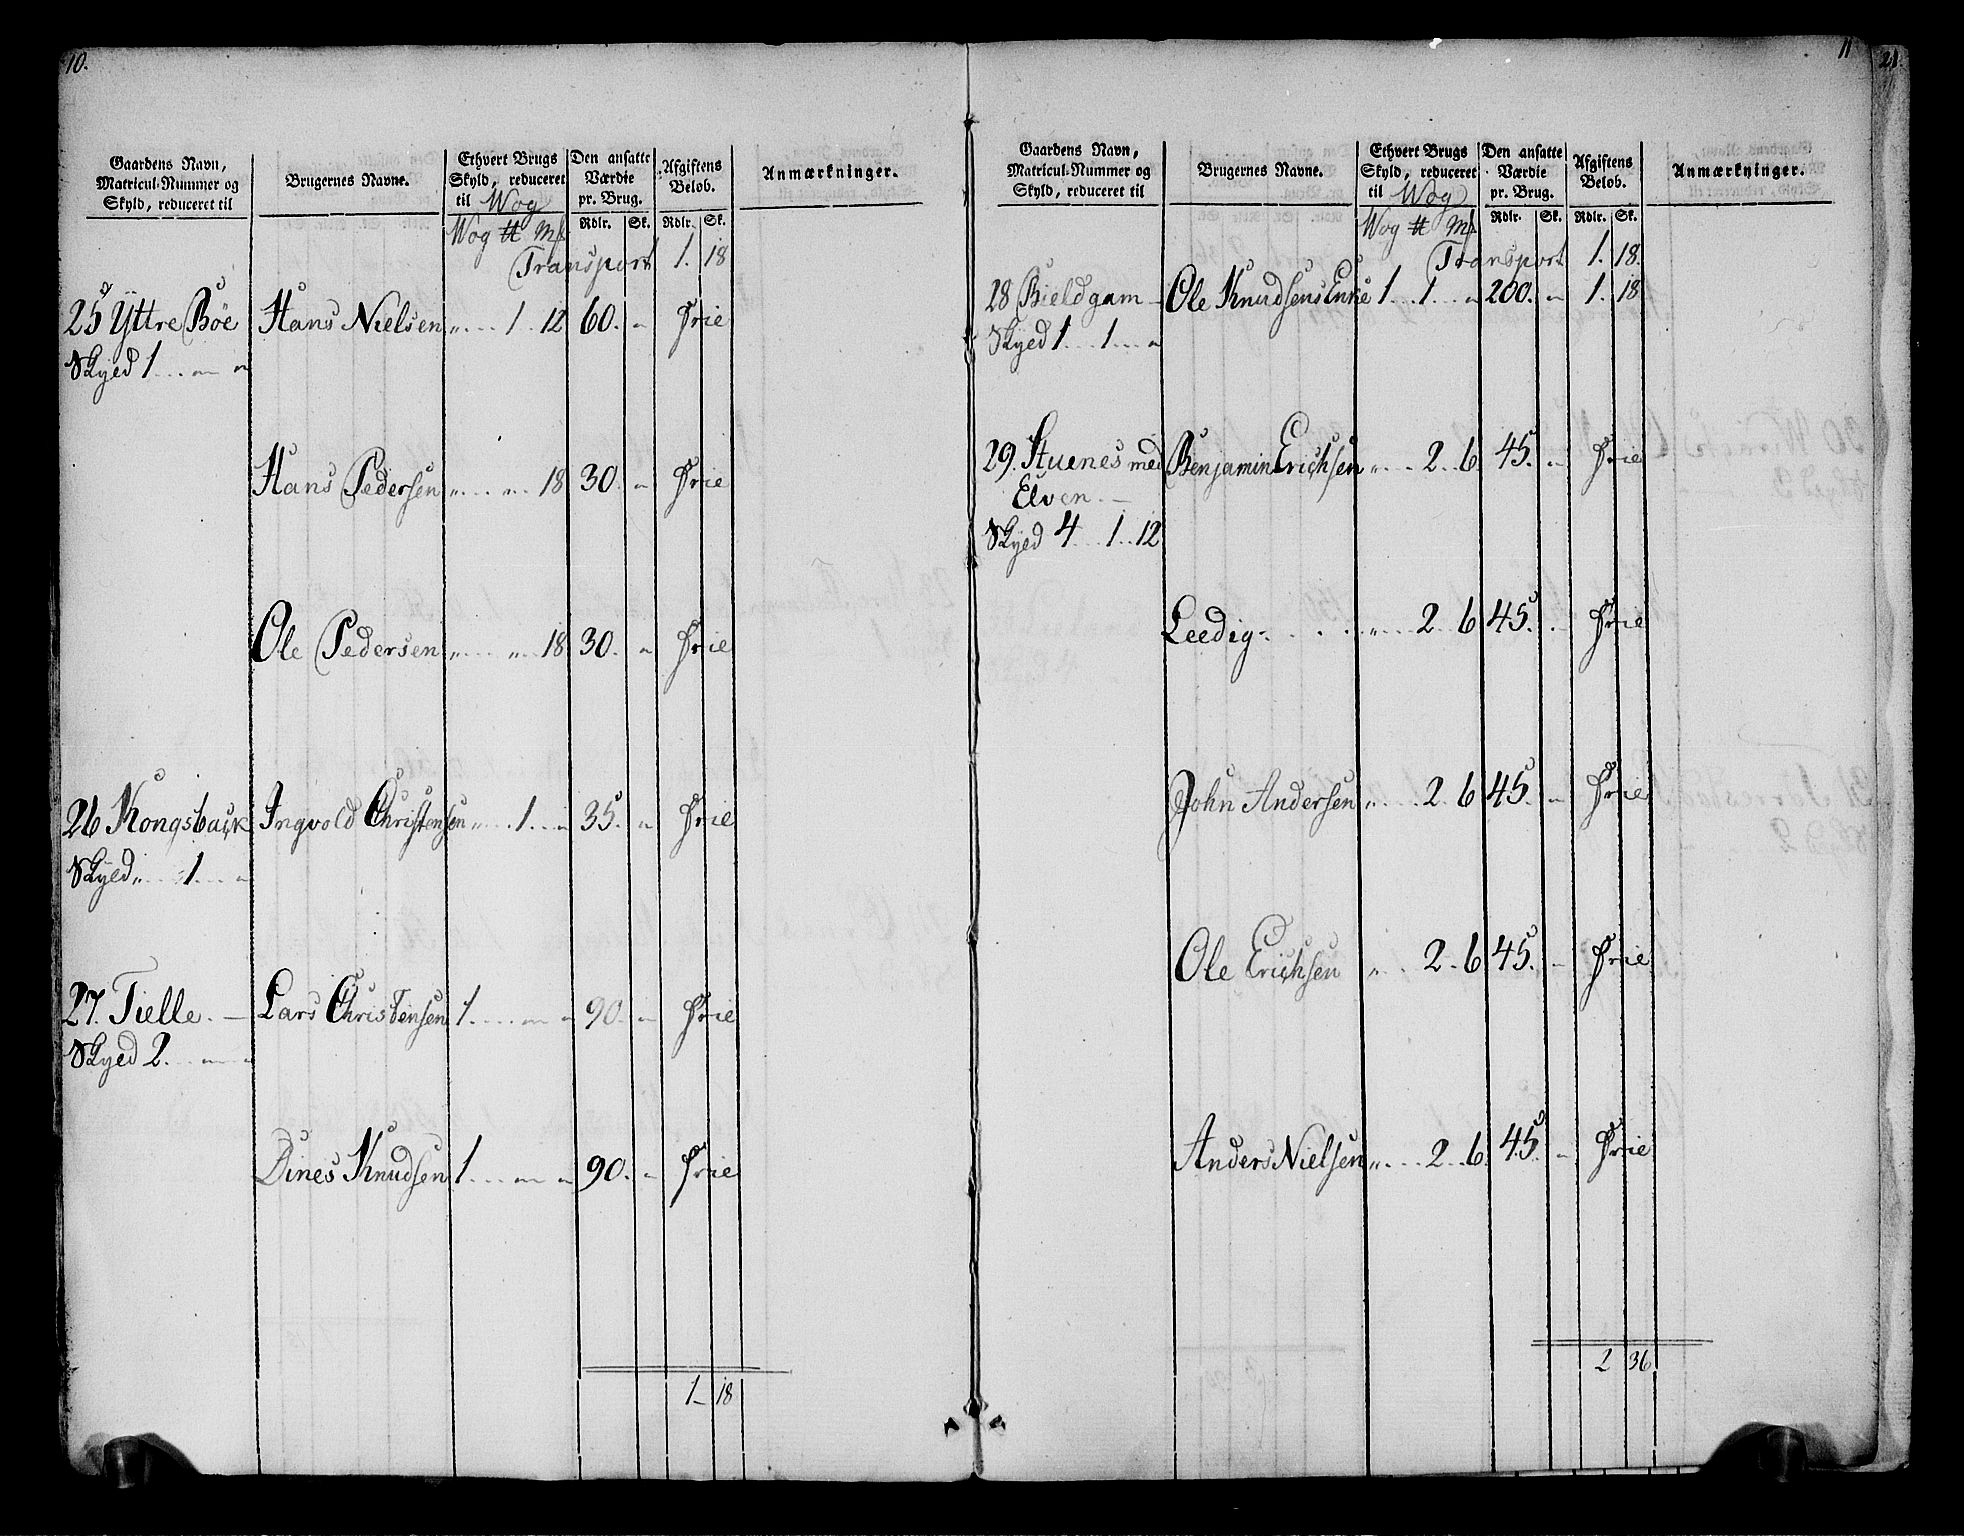 10.
Gaardens Navn, Matricul-Nummer og Skyld, reduceret til | Brugernes Navne. | Ethvert Brugs Skyld, reduceret til Wog | Den ansatte Værdie pr. Brug. | Afgiftens Belob. | Anmærkninger.
Wog ℔ Mk | Rdlr. | Sk. | Rdlr. | Sk.
Transport 1. 18
25 Yttre Böe Hans Nielsen „ 1 12 60. „ Frie
Skyed 1 „ „
Hans Pedersen „ „ 18 30. „ Frie
Ole Pedersen „ „ 18 30. „ Frie
26 Kongsback Ingvold Christensen „ 1 „ 35. „ Frie
Skyed „ 1 „
27. Tielle. Lars Christensen 1 „ „ 90. „ Frie
Skyed 2 „ „
Dines Knudsen 1 „ „ 90. „ Frie
1 18
11
Gaardens Navn, Matricul-Nummer og Skyld, reduceret til | Brugernes Navne. | Ethvert Brugs Skyld, reduceret til Wog | Den ansatte Værdie pr. Brug. | Afgiftens Belob. | Anmærkninger.
Wog ℔ Mk | Rdlr. | Sk. | Rdlr. | Sk.
Transport 1. 18.
28 Bieldgam Ole Knudsens Enke 1 1 „ 200. „ 1. 18
Skyed 1 1 „
29. Stuenes med Benjamin Erichsen „ 2 6 45. „ Frie
Elven
Skyed 4 1 12
Leedig „ 2 6 45. „ Frie
John Andersen „ 2 6 45. „ Frie
Ole Erichsen „ 2 6 45. „ Frie
Anders Nielsen „ 2 6 45. „ Frie
2 36
21.